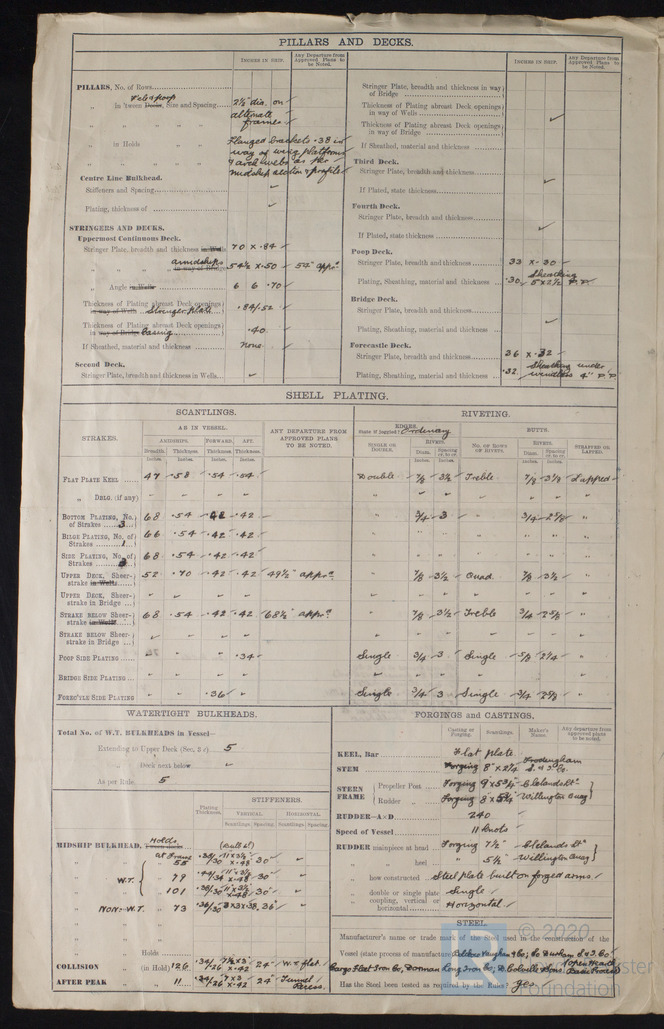 PILLARS AND DECKS.
INCHES IN SHIP.
Any Departure from Approved Plans to be Noted.
PILLARS, No. of Rows
in 'tween Decks, Size and Spacing
2½" dia. on
alternate
frames
in Holds
Flanged brackets .38 in
way of wing platforms
& arch webs as the
midship section & profile
Centre Line Bulkhead.
Stiffeners and Spacing
Plating, thickness of
STRINGERS AND DECKS.
Uppermost Continuous Deck.
Stringer Plate, breadth and thickness in Wells
70 x .84
amidships
in way of Bridge
54½ x .50
54" appd.
Angle in Wells
6 6 .70
Thickness of Plating abreast Deck openings in way of Wells Stringer plate
.84/.52
Thickness of Plating abreast Deck openings in way of Bridge Casing
.40
If Sheathed, material and thickness
None
Second Deck.
Stringer Plate, breadth and thickness in Wells
INCHES IN SHIP.
Any Departure from Approved Plans to be Noted.
Stringer Plate, breadth and thickness in way of Bridge
Thickness of Plating abreast Deck openings in way of Wells
Thickness of Plating abreast Deck openings in way of Bridge
If Sheathed, material and thickness
Third Deck.
Stringer Plate, breadth and thickness
If Plated, state thickness
Fourth Deck.
Stringer Plate, breadth and thickness
If Plated, state thickness
Poop Deck.
Stringer Plate, breadth and thickness
33 x .30
Plating, Sheathing, material and thickness
.30 Sheathing 5 x 2½ P.P.
Bridge Deck.
Stringer Plate, breadth and thickness
Plating, Sheathing, material and thickness
Forecastle Deck.
Stringer Plate, breadth and thickness
36 x .32
Plating, Sheathing, material and thickness
.32 Sheathing under windlass 4" P.P.
SHELL PLATING.
SCANTLINGS.
RIVETING.
STRAKES.
AS IN VESSEL.
ANY DEPARTURE FROM APPROVED PLANS TO BE NOTED.
EDGES.
State if joggled? Ordinary
BUTTS.
AMIDSHIPS. FORWARD. AFT.
SINGLE OR DOUBLE.
RIVETS.
No. OF ROWS OF RIVETS.
RIVETS.
STRAPPED OR LAPPED.
Breadth. Thickness. Thickness. Thickness.
Diam. Spacing cr. to cr.
Diam. Spacing cr. to cr.
Inches. Inches. Inches. Inches.
FLAT PLATE KEEL 47 .58 .54 .54 Double 7/8 3½ Treble 7/8 3⅛ Lapped
" DBLG. (if any)
BOTTOM PLATING, No. of Strakes 3 68 .54 .42 .42 " 3/4 3 " 3/4 2⅝ "
BILGE PLATING, No. of Strakes 1 66 .54 .42 .42
SIDE PLATING, No. of Strakes 68 .54 .42 .42
UPPER DECK, Sheerstrake in Wells 52 .70 .42 .42 49½" appd. " 7/8 3½ Quad. 7/8 3½ "
UPPER DECK, Sheerstrake in Bridge
STRAKE BELOW Sheerstrake in Wells 68 .54 .42 .42 68½" appd. " 7/8 3½ Treble 3/4 2⅝ "
STRAKE BELOW Sheerstrake in Bridge
POOP SIDE PLATING .34 Single 3/4 3 Single 5/8 2¼ "
BRIDGE SIDE PLATING
FOREC'TLE SIDE PLATING .36 Single 3/4 3 Single 3/4 2⅝ "
WATERTIGHT BULKHEADS.
Total No. of W.T. BULKHEADS in Vessel—
Extending to Upper Deck (Sec. 3 c) 5
" Deck next below
As per Rule 5
Plating Thickness.
STIFFENERS.
VERTICAL. HORIZONTAL.
Scantlings. Spacing. Scantlings. Spacing.
MIDSHIP BULKHEAD, Holds
at Frame 55
(Bulb L)
30"
W.T. 79
30"
101
30"
NON-W.T. 73
36"
Holds
COLLISION (in Hold) 126 24" W.T. flat.
AFTER PEAK " 11 24" Tunnel Recess.
FORGINGS AND CASTINGS.
Casting or Forging. Scantlings. Maker's Name. Any departure from approved plans to be noted.
KEEL, Bar Flat plate
STEM Forging 8" x 2¼ Frodingham I. & S. Co.
STERN FRAME
Propeller Post Forging 9" x 5¾ Clelands Ld.
Rudder " Forging 8" x 5¼ Willington Quay
RUDDER—A×D 240
Speed of Vessel 11 knots
RUDDER mainpiece at head Forging 7½" Clelands Ld.
" heel " 5¼" Willington Quay
" how constructed Steel plate built on forged arms
" double or single plate Single
" coupling, vertical or horizontal Horizontal
STEEL.
Manufacturer's name or trade mark of the Steel used in the construction of the
Vessel (state process of manufacture) Bolckow Vaughan & Co; So. Durham S. & I. Co
Cargo Fleet Iron Co, Dorman Long Iron & S. D. Colville & Sons. (Open Hearth Basic Process)
Has the Steel been tested as required by the Rules? Yes
© 2020
Foundation